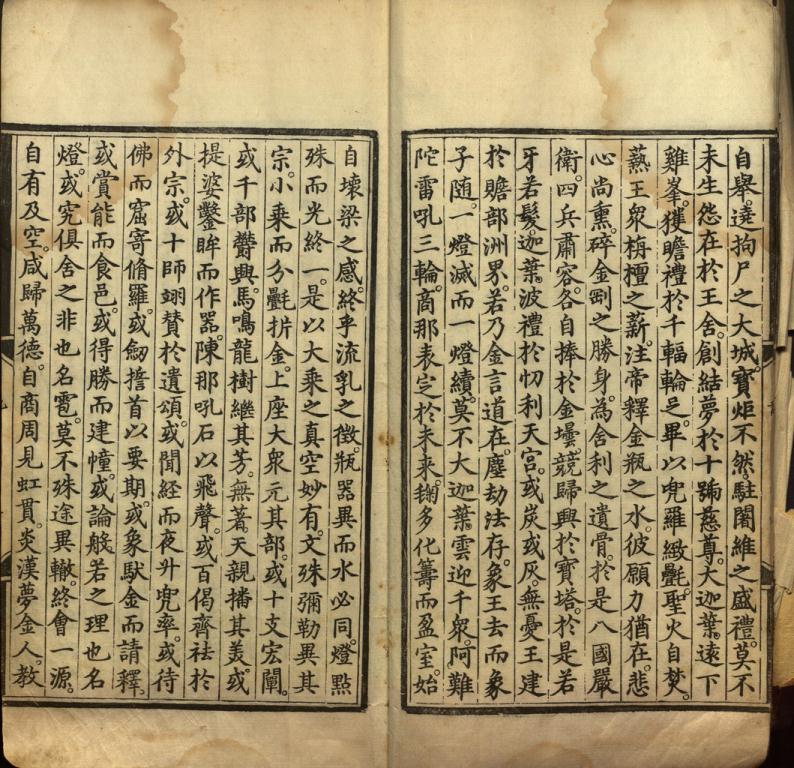 自舉。遶拘尸之大城。寶炬不然。駐闍維之盛禮。莫不
未生怨在於王舍。創結夢於十號慈尊。大迦葉。遠下
雞峯。獲瞻禮於千輻輪足。畢以兜羅緻㲲。聖火自焚。
爇王衆栴檀之薪。注帝釋金瓶之水。彼願力猶在。悲
心尚熏。碎金剛之勝身。為舍利之遺骨。於是八國嚴
衛。四兵肅容。各自捧於金壜。競歸興於寶塔。於是若
牙若髮。迦葉波禮於忉利天宮。或炭或灰。無憂王建
於贍部洲界。若乃金言道在。塵劫法存。象王去而象
子随。一燈滅而一燈續。莫不大迦葉雲迎千衆。阿難
陀雷吼三輪。商那表定於未来。毱多化籌而盈室。始
自壞梁之感。終乎流乳之徵。瓶器異而水必同。燈點
殊而光終一。是以大乘之真空妙有。文殊彌勒異其
宗。小乘而分㲲拆金。上座大衆元其部。或十支宏闡。
或千部欝興。馬鳴龍樹繼其芳。無著天親播其美。或
提婆鑿眸而作器。陳那吼石以飛聲。或百偈齊祛於
外宗。或十師翊賛於遺頌。或聞経而夜升兜率。或待
佛而窟寄脩羅。或劒擔首以要期。或象馱金而請釋。
或賞能而食邑。或得勝而建幢。或論般若之理也名
燈。或究俱舍之非也名雹。莫不殊途異轍。終會一源。
自有及空。咸歸萬德。自商周見虹貫。炎漢夢金人。教